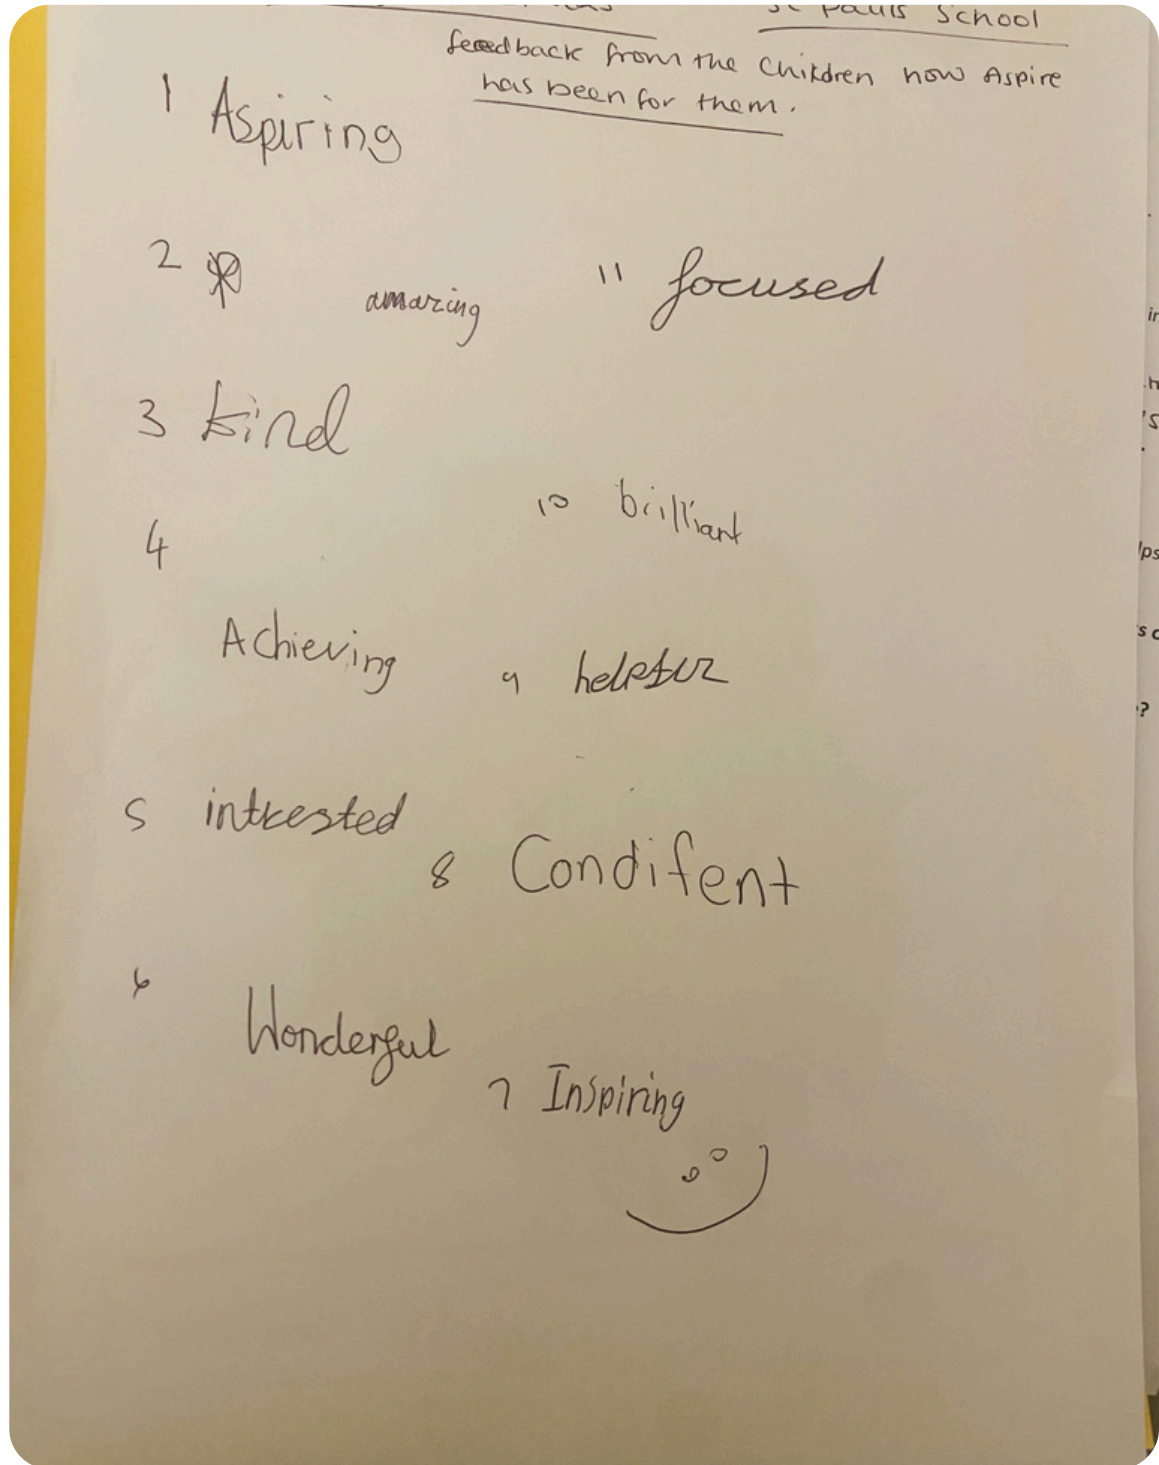 St Pauls School
feedback from the Children how Aspire
has been for them.
1 Aspiring
2 amazing
11 focused
3 kind
10 brilliant
4
Achieving
9 helpful
5 intrested
8 Condifent
6
Wonderful
7 Inspiring